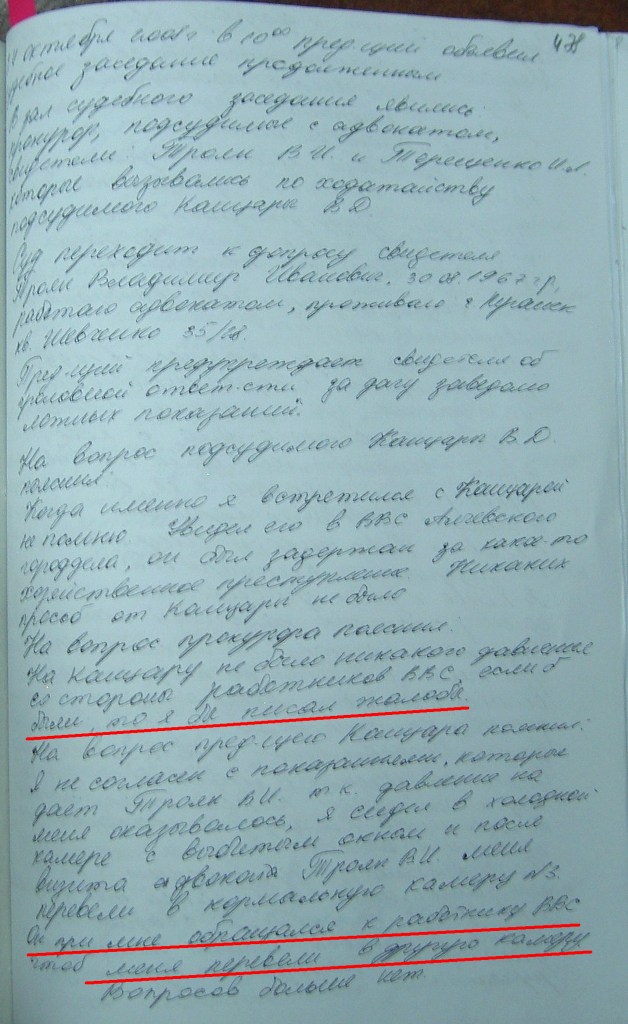 438
октября 2008г в 10⁰⁰ пред-щий объявил
судебное заседание продолженным
В зал судебного заседания явились
прокурор, подсудимые с адвокатом,
свидетели: Тролян В.И. и Терещенко И.А.
которые вызывались по ходатайству
подсудимого Кашцары В.Д.
Суд переходит к допросу свидетеля
Владимир Иванович, 30.08.1967 г.р,
работаю адвокатом, проживаю г Луганск
кв. Шевченко 35/
Пред-щий предупреждает свидетеля об
уголовной ответ-сти за дачу заведомо
ложных показаний.
На вопрос подсудимого В.Д.
пояснил:
Когда именно я встретился с
не помню. Увидел его в ВВС Алчевского
горотдела, он был задержан за какое-то
хозяйственное преступление. Никаких
просьб от не было
На вопрос прокурора пояснил:
На не было никакого давления
со стороны работников ВВС, если б
были, то я бы писал жалобы.
На вопрос пред-щего пояснил:
Я не согласен с показаниями, которые
дает В.И. т.к. давление на
меня оказывалось, я сидел в холодной
камере с выбитым окном и после
визита адвоката В.И. меня
перевели в нормальную камеру №3.
Он при мне обращался к работнику ВВС
чтоб меня перевели в другую камеру
Вопросов больше нет.